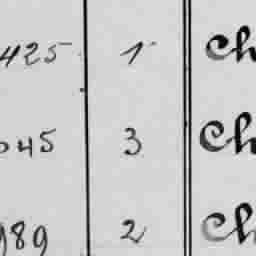 425 1 Ch
45 3 Ch
989 2 Ch